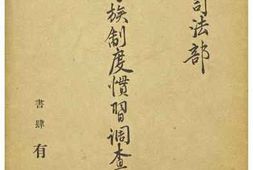 司法部
族制度慣習調査
書肆 有